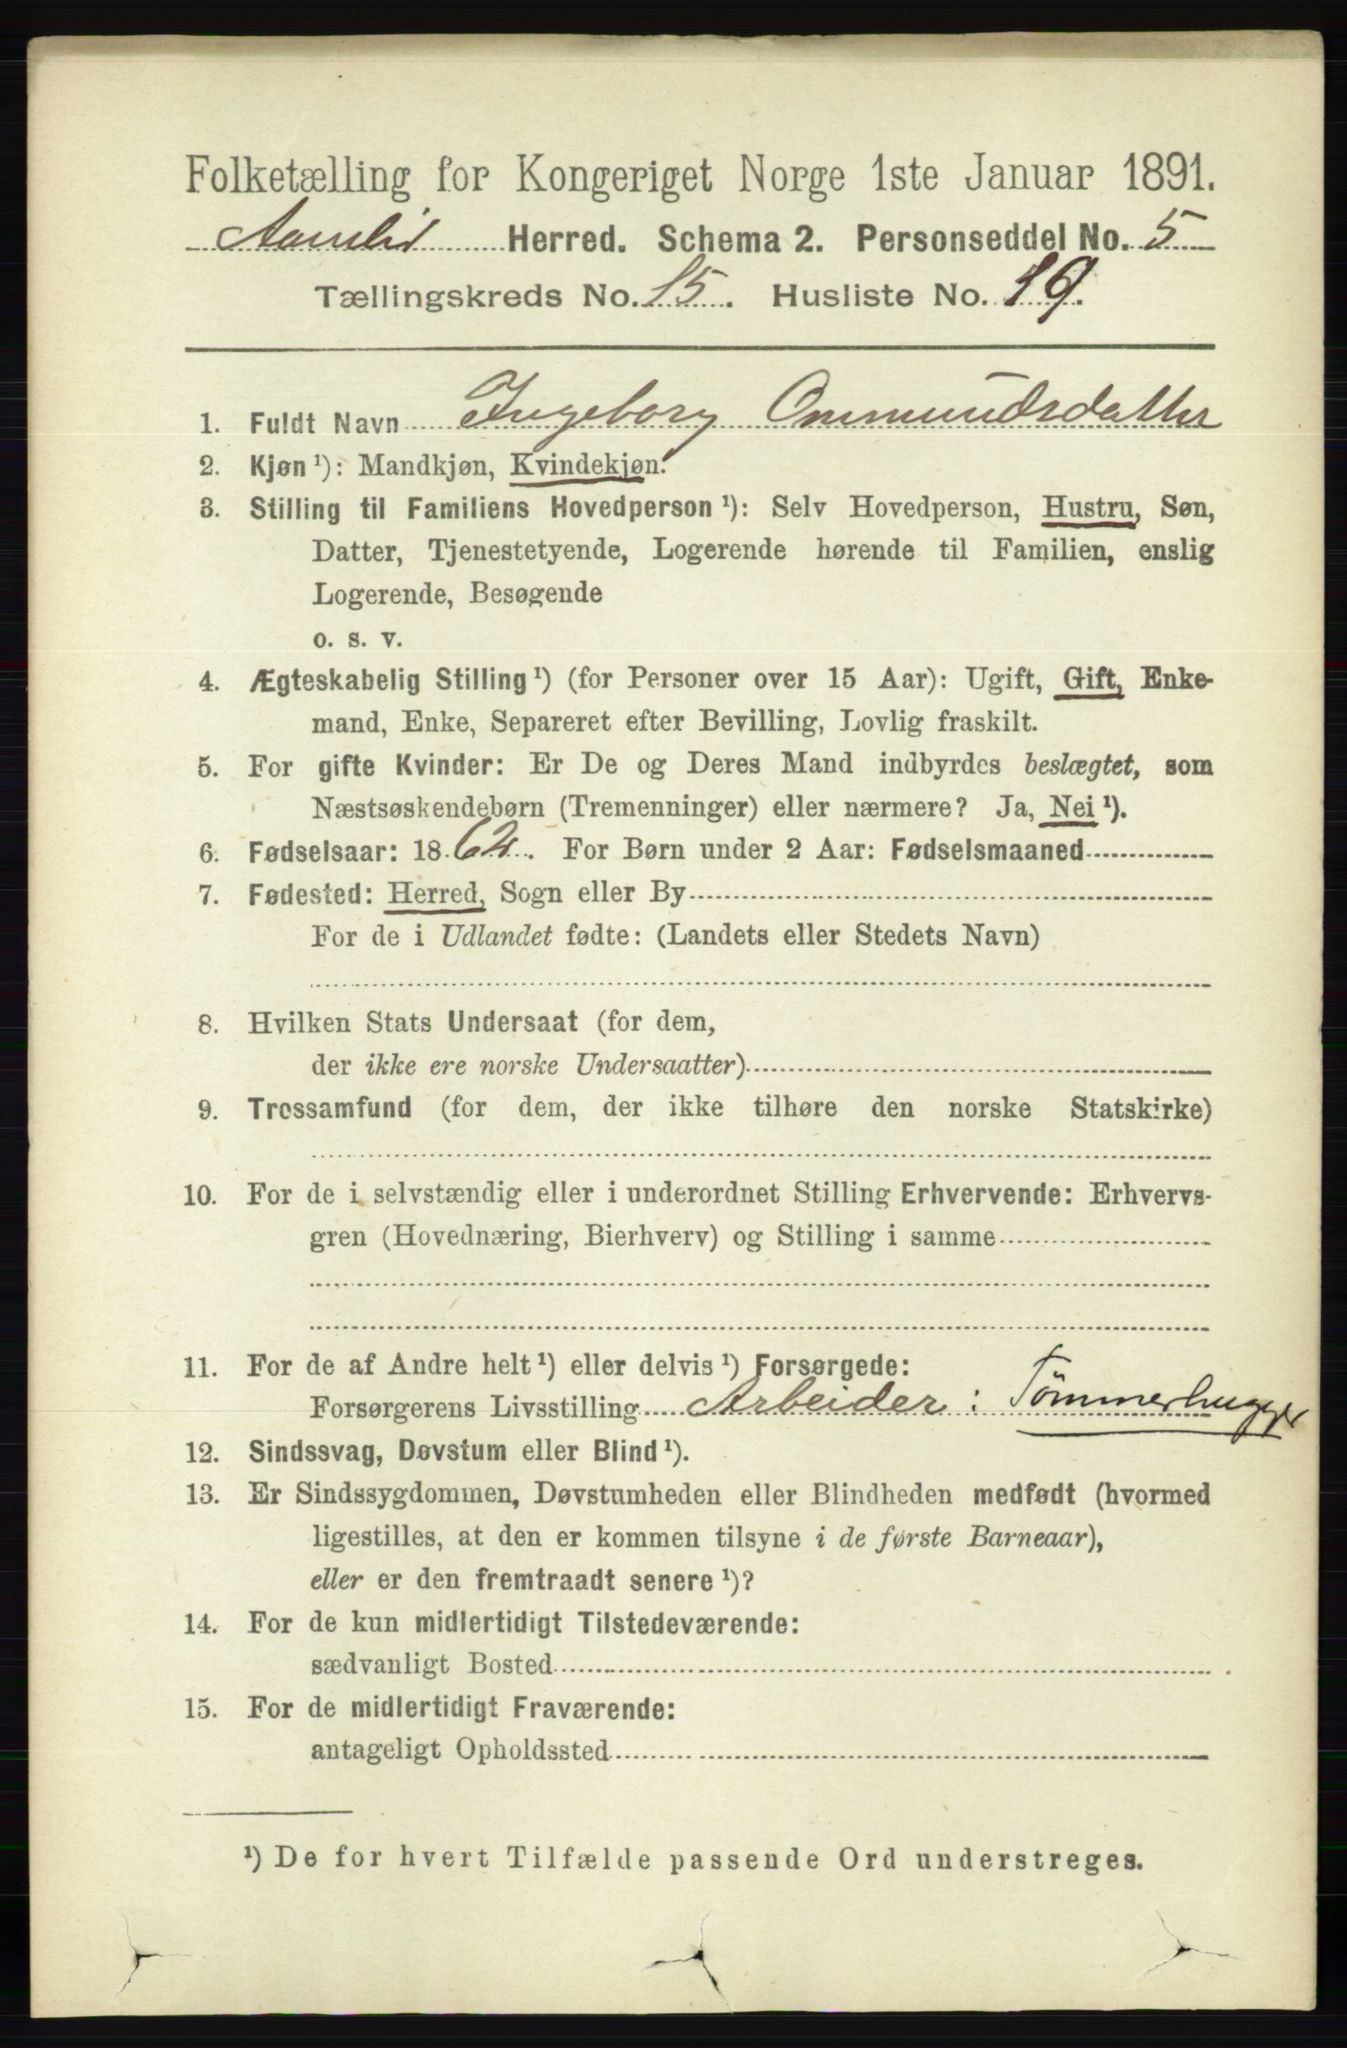 Folketælling for Kongeriget Norge 1ste Januar 1891.
Aamlid Herred. Schema 2. Personseddel No. 5
Tællingskreds No. 15. Husliste No. 19.
1. Fuldt Navn Ingeborg Ommundsdatter
2. Kjøn ¹): Mandkjøn, Kvindekjøn.
3. Stilling til Familiens Hovedperson ¹): Selv Hovedperson, Hustru, Søn,
Datter, Tjenestetyende, Logerende hørende til Familien, enslig
Logerende, Besøgende
o. s. v.
4. Ægteskabelig Stilling ¹) (for Personer over 15 Aar): Ugift, Gift, Enke-
mand, Enke, Separeret efter Bevilling, Lovlig fraskilt.
5. For gifte Kvinder: Er De og Deres Mand indbyrdes beslægtet, som
Næstsøskendebørn (Tremenninger) eller nærmere? Ja, Nei ¹).
6. Fødselsaar: 1862. For Børn under 2 Aar: Fødselsmaaned
7. Fødested: Herred, Sogn eller By
For de i Udlandet fødte: (Landets eller Stedets Navn)
8. Hvilken Stats Undersaat (for dem,
der ikke ere norske Undersaatter)
9. Trossamfund (for dem, der ikke tilhøre den norske Statskirke)
10. For de i selvstændig eller i underordnet Stilling Erhvervende: Erhvervs-
gren (Hovednæring, Bierhverv) og Stilling i samme
11. For de af Andre helt ¹) eller delvis ¹) Forsørgede:
Forsørgerens Livsstilling Arbeider: Tömmerhugger
12. Sindssvag, Døvstum eller Blind ¹).
13. Er Sindssygdommen, Døvstumheden eller Blindheden medfødt (hvormed
ligestilles, at den er kommen tilsyne i de første Barneaar),
eller er den fremtraadt senere ¹)?
14. For de kun midlertidigt Tilstedeværende:
sædvanligt Bosted
15. For de midlertidigt Fraværende:
antageligt Opholdssted
¹) De for hvert Tilfælde passende Ord understreges.